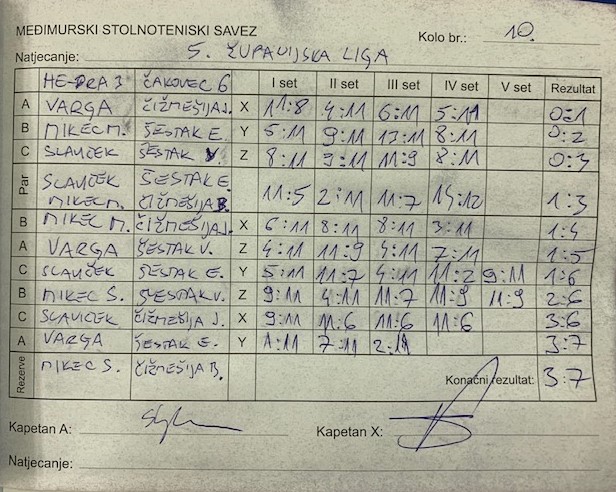 MEĐIMURSKI STOLNOTENISKI SAVEZ
Kolo br.: 10.
Natjecanje: 5. ŽUPANIJSKA LIGA
HE-DRA 3 ČAKOVEC 6 I set II set III set IV set V set Rezultat
A VARGA ČIŽMEŠIJA J. X 11:8 4:11 6:11 5:11 0:1
B MIKEC M. ŠESTAK E. Y 5:11 9:11 13:11 8:11 0:2
C SLAVIČEK ŠESTAK V Z 8:11 9:11 11:9 8:11 0:3
Par SLAVIČEK ŠESTAK E.
MIKEC M. ČIŽMEŠIJA B. 11:5 2:11 11:7 14:12 1:3
B MIKEC M. ČIŽMEŠIJA J. X 6:11 8:11 8:11 3:11 1:4
A VARGA ŠESTAK V. Z 4:11 11:9 4:11 7:11 1:5
C SLAVIČEK ŠESTAK E. Y 5:11 11:7 4:11 11:2 9:11 1:6
B MIKEC S. ŠESTAK V. Z 9:11 4:11 11:7 11:9 11:9 2:6
C SLAVIČEK ČIŽMEŠIJA J. X 9:11 11:6 11:6 11:6 3:6
A VARGA ŠESTAK E. Y 1:11 7:11 2:11 3:7
Rezerve MIKEC S. ČIŽMEŠIJA B. Konačni rezultat: 3:7
Kapetan A: Kapetan X:
Natjecanje: